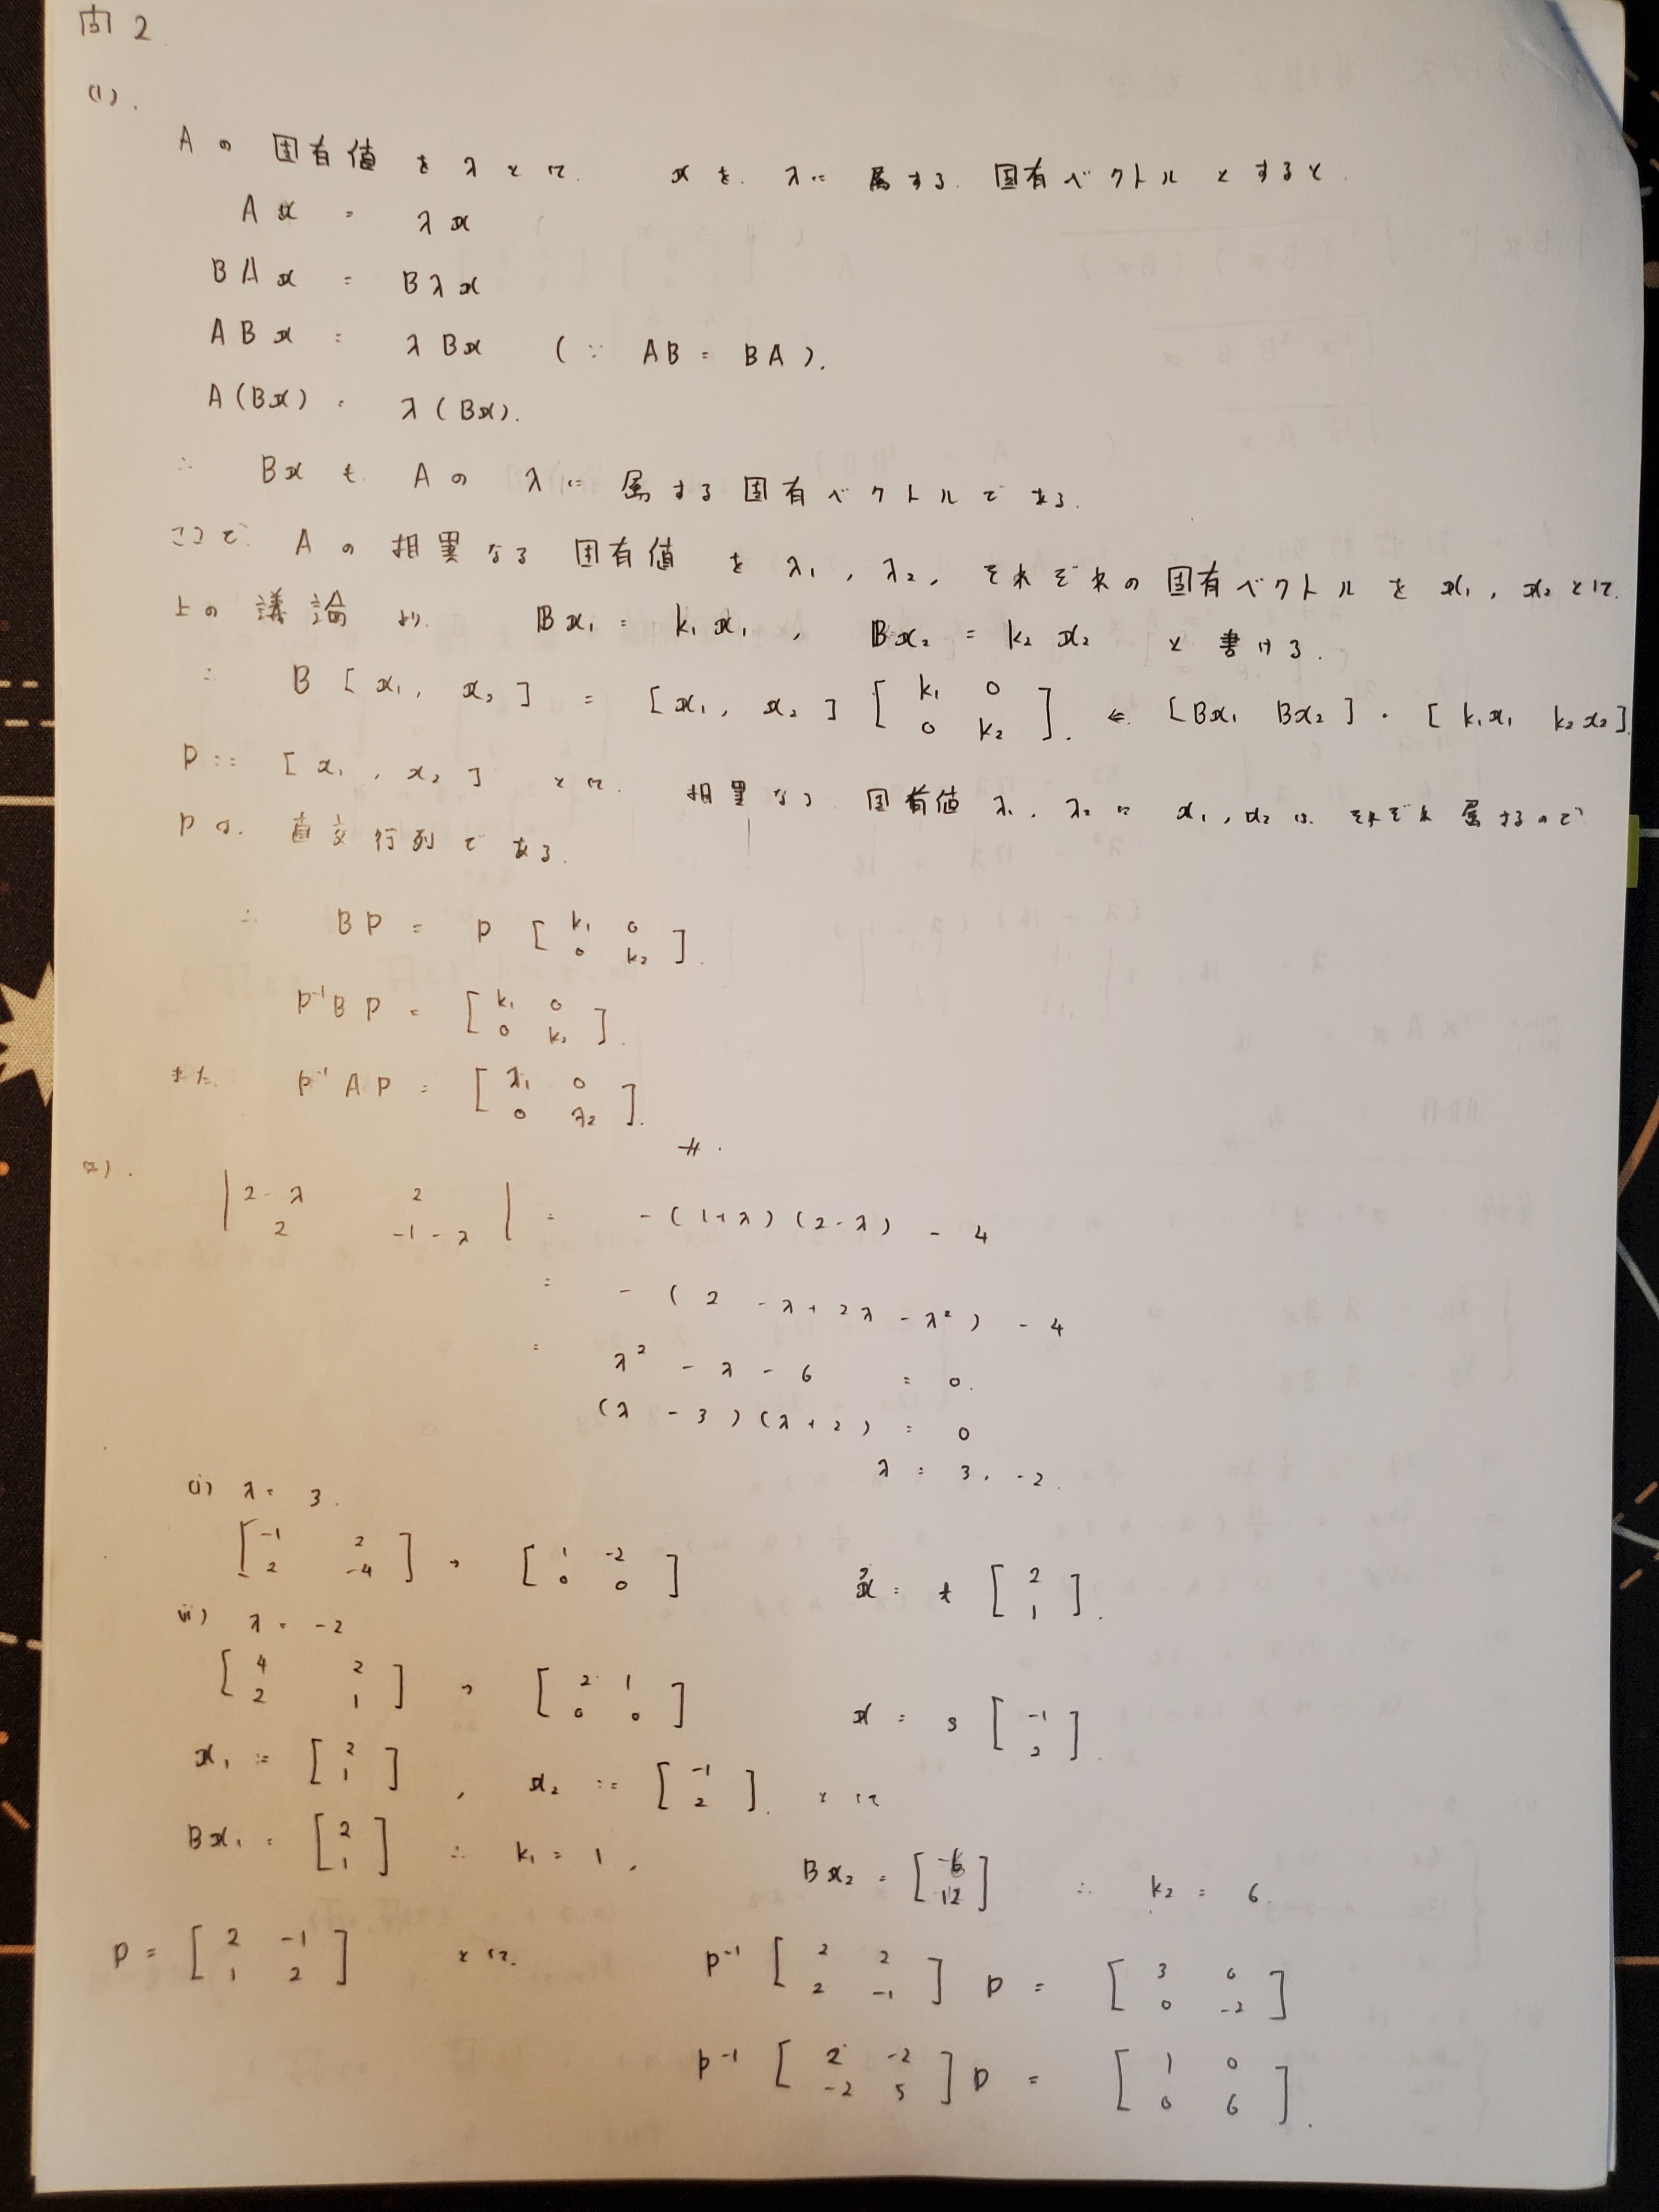 問 2
(1).
A の 固有値 を λ として. x を. λ に 属する. 固有ベクトル とすると.
A x = λ x
B A x = B λ x
A B x = λ B x ( ∵ AB = BA ).
A ( B x ) = λ ( B x ).
∴ B x も. A の λ に 属する 固有ベクトル である.
ここで. A の 相異なる 固有値 を λ₁ , λ₂ , それぞれの 固有ベクトル を x₁ , x₂ として.
上の 議論 より. B x₁ = k₁ x₁ , B x₂ = k₂ x₂ と 書ける.
∴ B [ x₁ , x₂ ] = [ x₁ , x₂ ] [ k₁ 0
0 k₂ ] . ⇐ [ B x₁ B x₂ ] = [ k₁ x₁ k₂ x₂ ].
P := [ x₁ , x₂ ] として. 相異なる 固有値 λ₁ , λ₂ に x₁ , x₂ は. それぞれ 属するので
P は. 直交行列 で ある.
∴ B P = P [ k₁ 0
0 k₂ ] .
P⁻¹ B P = [ k₁ 0
0 k₂ ] .
また. P⁻¹ A P = [ λ₁ 0
0 λ₂ ] .
#.
(2).
| 2 - λ 2
2 -1 - λ | = - ( 1 + λ ) ( 2 - λ ) - 4
= - ( 2 - λ + 2λ - λ² ) - 4
= λ² - λ - 6 = 0.
( λ - 3 ) ( λ + 2 ) = 0
λ = 3 , -2 .
(i) λ = 3 .
[ -1 2
2 -4 ] → [ 1 -2
0 0 ] x = t [ 2
1 ] .
(ii) λ = -2
[ 4 2
2 1 ] → [ 2 1
0 0 ] x = s [ -1
2 ] .
x₁ := [ 2
1 ] , x₂ := [ -1
2 ] . として
B x₁ = [ 2
1 ] ∴ k₁ = 1 , B x₂ = [ -6
12 ] ∴ k₂ = 6.
P = [ 2 -1
1 2 ] として. P⁻¹ [ 2 2
2 -1 ] P = [ 3 0
0 -2 ]
P⁻¹ [ 2 -2
-2 5 ] P = [ 1 0
0 6 ] .